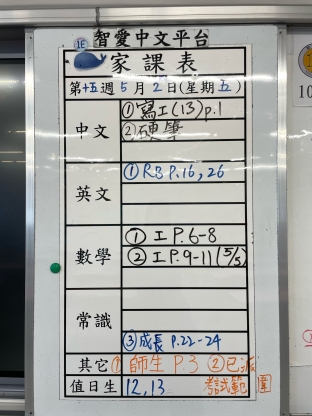 1E
智愛中文平台
家課表
第十五週5月2日(星期五)
中文
①寫工(13)p.1
②硬筆
英文
①RB P.16, 26
數學
①工P.6-8
②工P.9-11(5/5)
常識
③成長 P.22-24
其它
①師生 P.3 ②已派考試範圍
值日生
12, 13
10